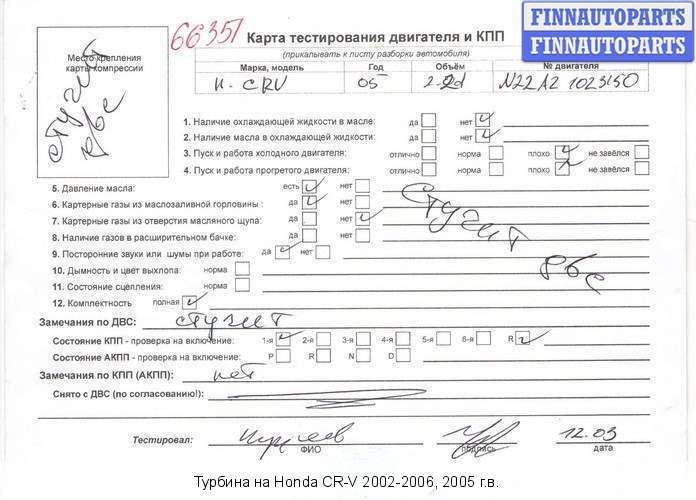 66351
Карта тестирования двигателя и КПП
(прикалывать к листу разборки автомобиля)
FINNAUTOPARTS
FINNAUTOPARTS
Место крепления
карты компрессии
стучит
Марка, модель Год Объём № двигателя
H-CRV 05 2.2d N22A2 1023150
1. Наличие охлаждающей жидкости в масле: да нет
2. Наличие масла в охлаждающей жидкости: да нет
3. Пуск и работа холодного двигателя: отлично норма плохо не завёлся
4. Пуск и работа прогретого двигателя: отлично норма плохо не завёлся
5. Давление масла: есть нет
6. Картерные газы из маслозаливной горловины: да нет
7. Картерные газы из отверстия масляного щупа: да нет
8. Наличие газов в расширительном бачке: да нет
9. Посторонние звуки или шумы при работе: да нет
стучит
10. Дымность и цвет выхлопа: норма
11. Состояние сцепления: норма
12. Комплектность полная
Замечания по ДВС: стучит
Состояние КПП - проверка на включение: 1-я 2-я 3-я 4-я 5-я 6-я R
Состояние АКПП - проверка на включение: P R N D
Замечания по КПП (АКПП): нет
Снято с ДВС (по согласованию!):
Тестировал: 12.03
ФИО подпись дата
Турбина на Honda CR-V 2002-2006, 2005 г.в.